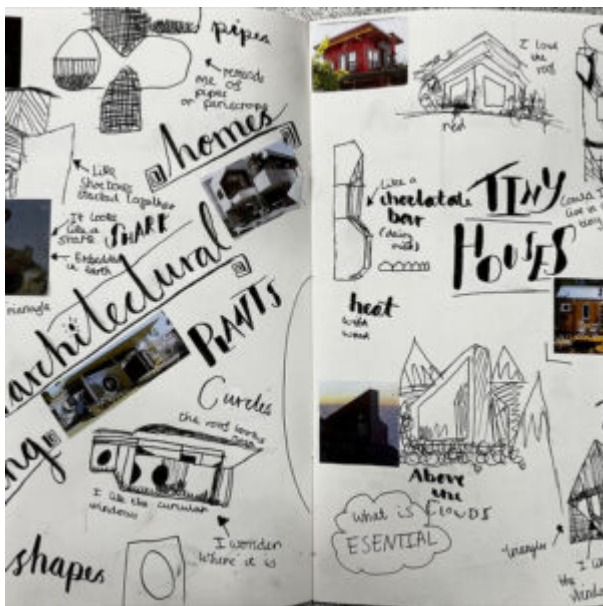 pipes
reminds
me of
pipes
or periscrope
homes
Like
Shoe boxes
stacked together
It looks
like a
shark
SHARK
Embedded
in earth
triangle
architectural
PLANTS
Curcles
the roof looks
I like the curcular
windows
I wonder
where it is
shapes
I love
the
roof
red
Like a
choclatate
bar
(dairy
milk)
TINY
HOUSES
could I
live in a
tiny
heat
with
wood
Above
the
CLOUDS
what is
ESENTIAL
triangles
the